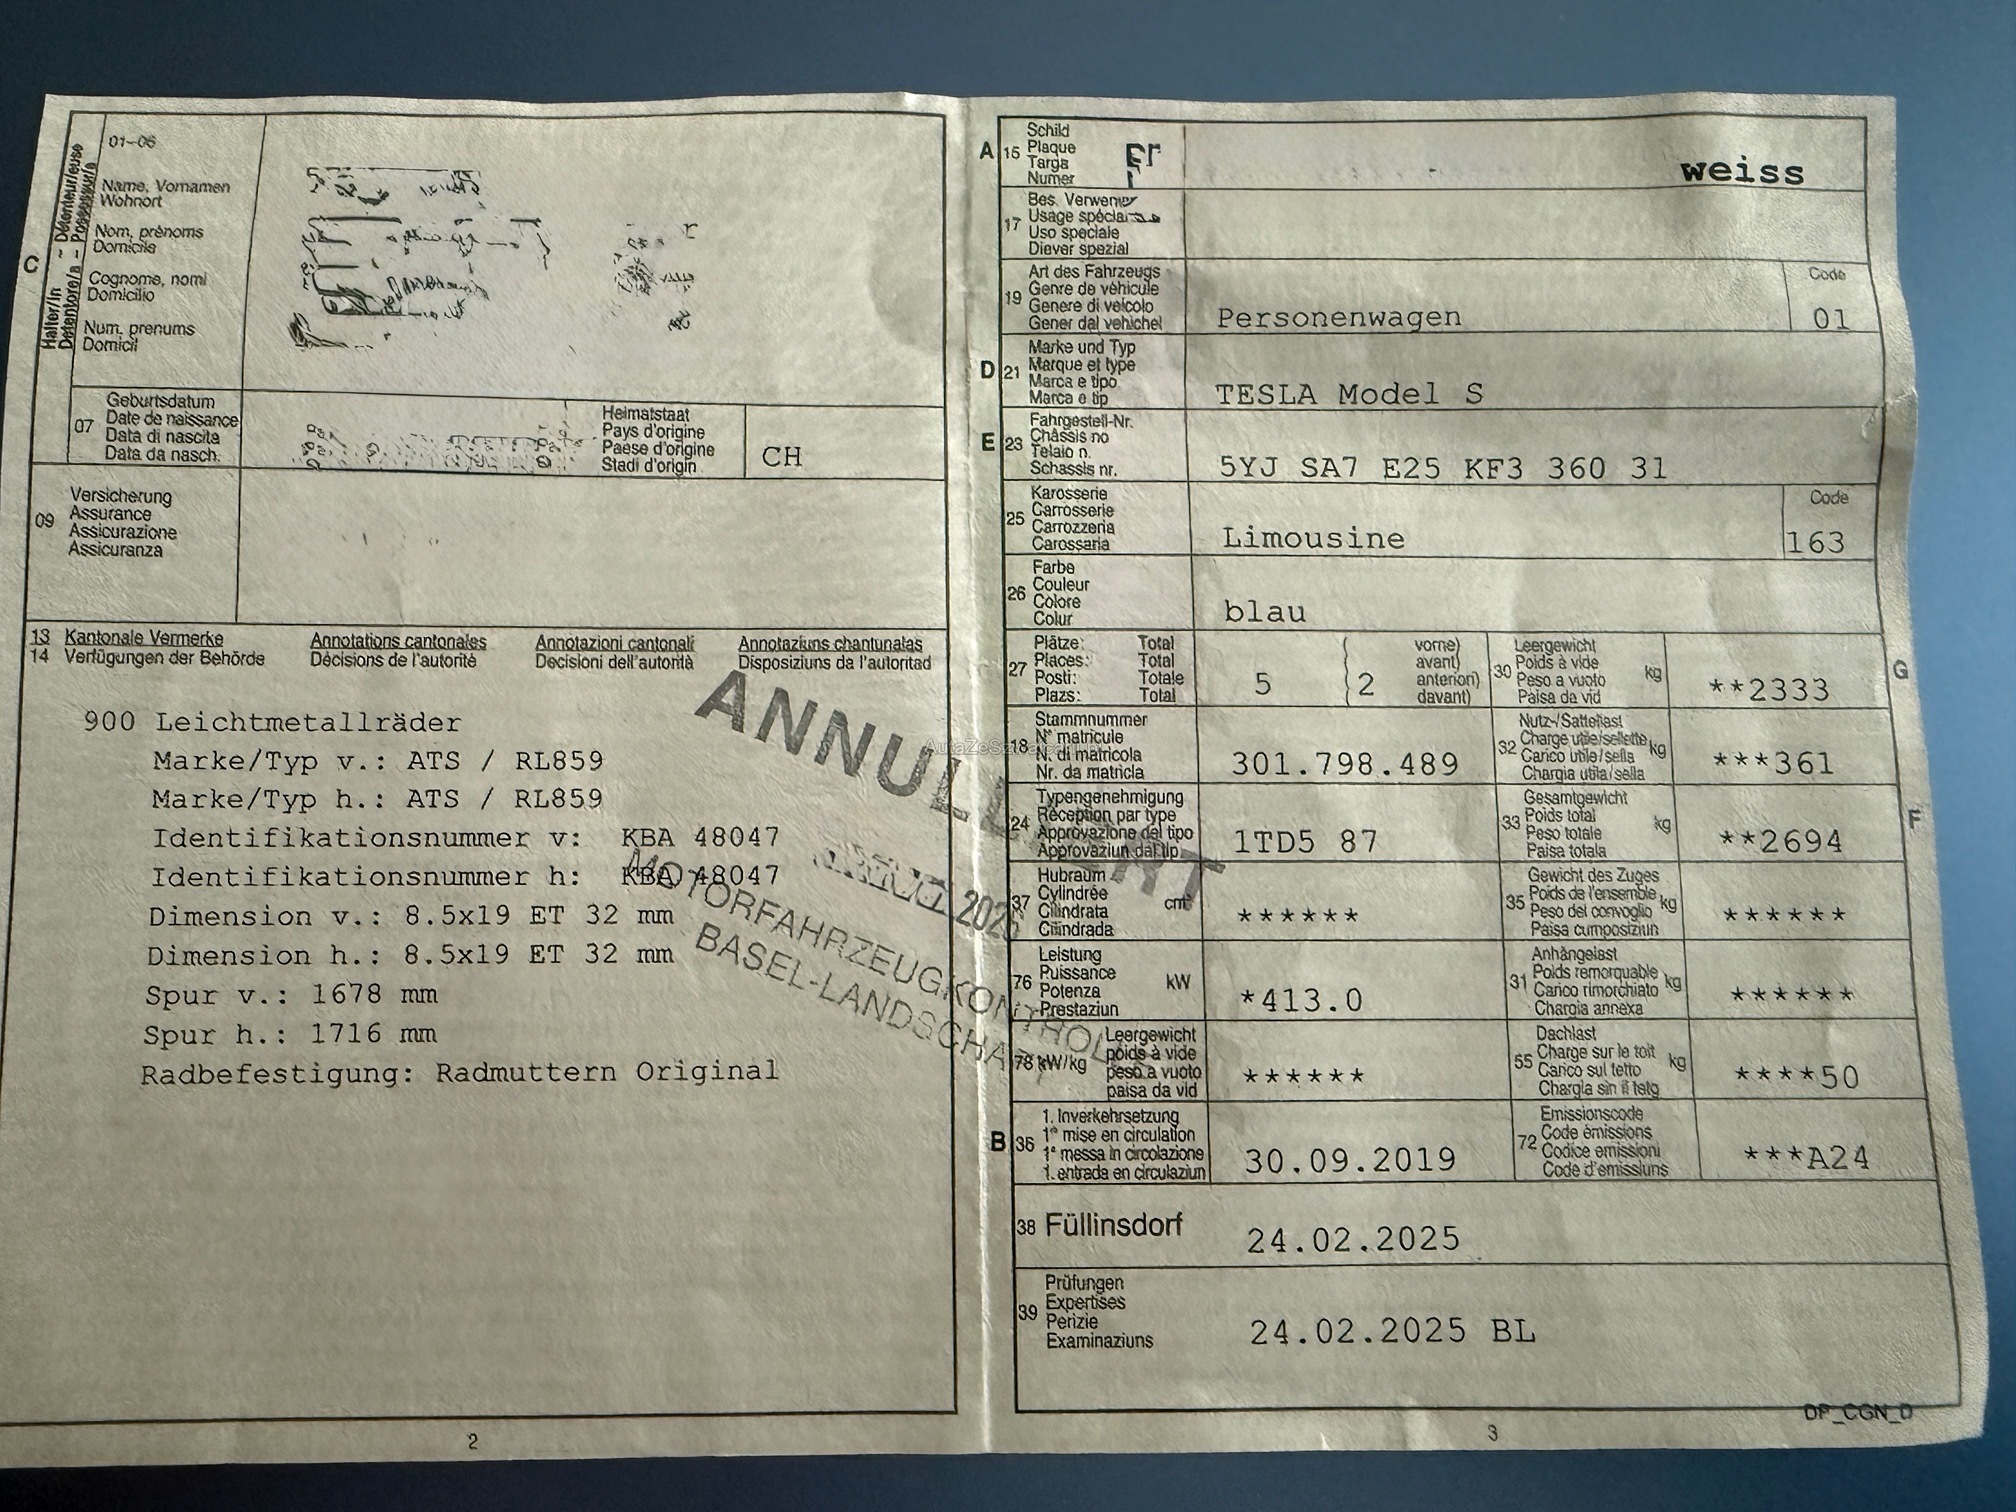 01-06
Halter/in ~ Détenteur/euse
Detentore/a - Possessur/a
C
Name, Vornamen
Wohnort
Nom, prénoms
Domicile
Cognome, nomi
Domicilio
Num. prenums
Domicil
07
Geburtsdatum
Date de naissance
Data di nascita
Data da nasch.
Heimatstaat
Pays d'origine
Paese d'origine
Stadi d'origin
CH
09
Versicherung
Assurance
Assicurazione
Assicuranza
13 Kantonale Vermerke Annotations cantonales Annotazioni cantonali Annotaziuns chantunalas
14 Verfügungen der Behörde Décisions de l'autorité Decisioni dell'autorità Disposiziuns da l'autoritad
900 Leichtmetallräder
Marke/Typ v.: ATS / RL859
Marke/Typ h.: ATS / RL859
Identifikationsnummer v: KBA 48047
Identifikationsnummer h: KBA 48047
Dimension v.: 8.5x19 ET 32 mm
Dimension h.: 8.5x19 ET 32 mm
Spur v.: 1678 mm
Spur h.: 1716 mm
Radbefestigung: Radmuttern Original
2025
MOTORFAHRZEUGKONTROLLE
BASEL-LANDSCHAFT
2
A 15
Schild
Plaque
Targa
Numer
weiss
17
Bes.
Usage
Uso speciale
Diever spezial
19
Art des Fahrzeugs
Genre de véhicule
Genere di veicolo
Gener dal vehichel
Personenwagen
Code
01
D 21
Marke und Typ
Marque et type
Marca e tipo
Marca e tip
TESLA Model S
E 23
Fahrgestell-Nr.
Châssis no
Telaio n.
Schassis nr.
5YJ SA7 E25 KF3 360 31
25
Karosserie
Carrosserie
Carrozzeria
Carossaria
Limousine
Code
163
26
Farbe
Couleur
Colore
Colur
blau
27
Plätze: Total
Places: Total
Posti: Totale
Plazs: Total
5 ( 2
vorne)
avant)
anteriori)
davant)
30
Leergewicht
Poids à vide
Peso a vuoto
Paisa da vid
kg
**2333
G
18
Stammnummer
N° matricule
N. di matricola
Nr. da matricla
301.798.489
32
Nutz-/Sattellast
Charge utile/sellette
Carico utile/sella
Chargia utila/sella
kg
***361
24
Typengenehmigung
Réception par type
Approvazione del tipo
Approvaziun dal tip
1TD5 87
33
Gesamtgewicht
Poids total
Peso totale
Paisa totala
kg
**2694
F
37
Hubraum
Cylindrée
Cilindrata
Cilindrada
cm³
******
35
Gewicht des Zuges
Poids de l'ensemble
Peso del convoglio
Paisa cumposiziun
kg
******
76
Leistung
Puissance
Potenza
Prestaziun
kW
*413.0
31
Anhängelast
Poids remorquable
Carico rimorchiato
Chargia annexa
kg
******
78 kW/kg
Leergewicht
poids à vide
peso a vuoto
paisa da vid
******
55
Dachlast
Charge sur le toit
Carico sul tetto
Chargia sin il tetg
kg
****50
B 36
1. Inverkehrsetzung
1re mise en circulation
1a messa in circolazione
1. entrada en circulaziun
30.09.2019
72
Emissionscode
Code émissions
Codice emissioni
Code d'emissiuns
***A24
38 Füllinsdorf
24.02.2025
39
Prüfungen
Expertises
Perizie
Examinaziuns
24.02.2025 BL
DP_CGN_D
3